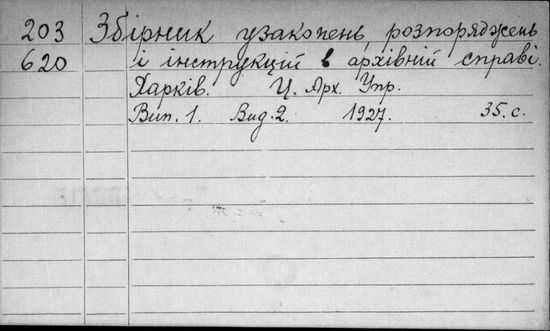 203 Збірник узаконень розпоряджень
620 і інструкцій в архівній справі.
Харків. Ц. Арх. Упр.
Вип. 1. Вид. 2. 1927. 35. с.